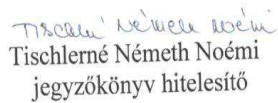 Tischlné Németh Noémi
Tischlerné Németh Noémi
jegyzőkönyv hitelesítő